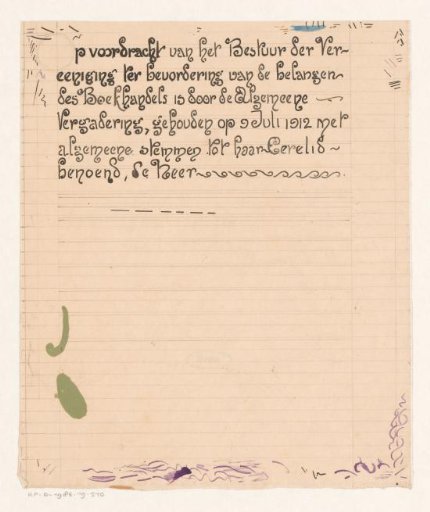 p voordracht van het Bestuur der Ver-
eeniging ter bevordering van de belangen
des Boekhandels is door de Algemeene
Vergadering, gehouden op 9 Juli 1912 met
algemeene stemmen tot haar Eerelid
benoemd, de Heer